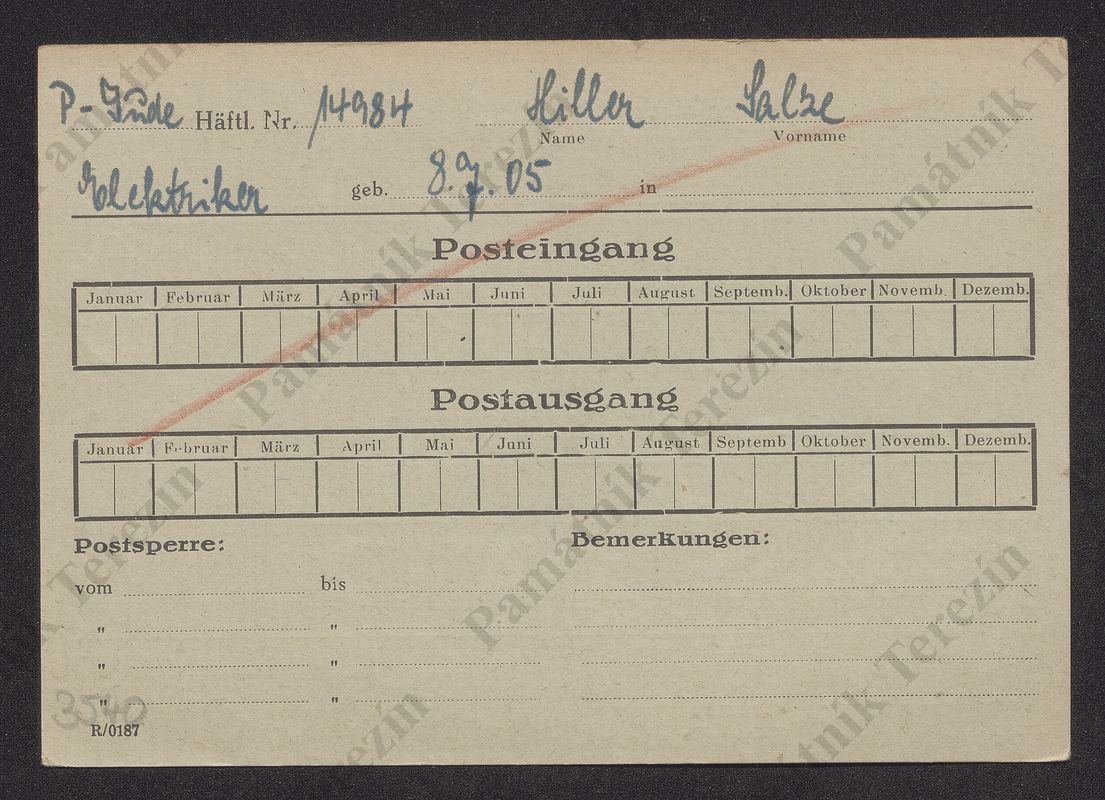 P-Jude Häftl. Nr. 14984 Hiller Salze
Name Vorname
Elektriker geb. 8.9.05 in
Posteingang
Januar Februar März April Mai Juni Juli August Septemb. Oktober Novemb. Dezemb.
Postausgang
Januar Februar März April Mai Juni Juli August Septemb Oktober Novemb. Dezemb.
Postsperre: Bemerkungen:
vom bis
" "
" "
" "
3540
R/0187
Památník Terezín